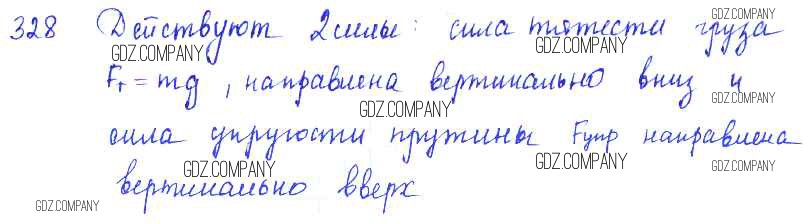 328 Действуют 2 силы: сила тяжести груза
GDZ.COMPANY GDZ.COMPANY GDZ.COMPANY
Fт = mg, направлена вертикально вниз и
GDZ.COMPANY GDZ.COMPANY
сила упругости пружины Fупр направлена
GDZ.COMPANY GDZ.COMPANY GDZ.COMPANY
вертикально вверх
GDZ.COMPANY